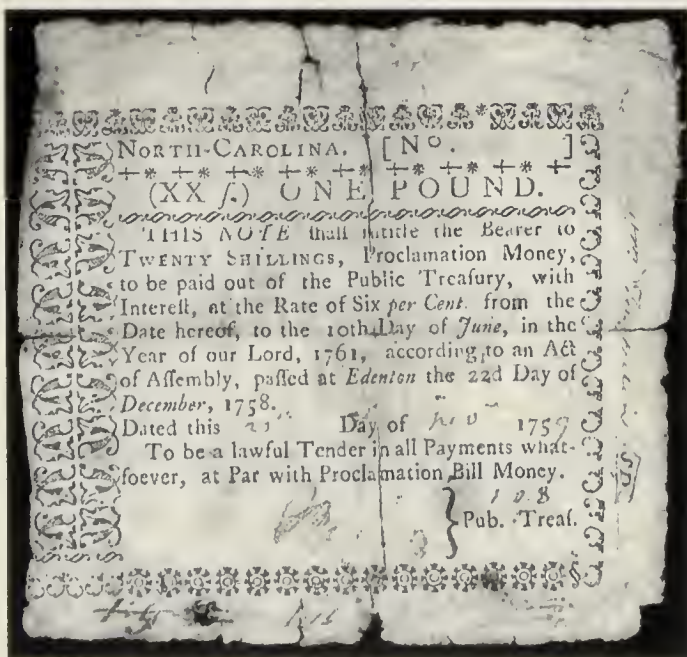 NORTH-CAROLINA. [No. ]
(XX ſ.) ONE POUND.
THIS NOTE ſhall intitle the Bearer to
TWENTY SHILLINGS, Proclamation Money,
to be paid out of the Public Treaſury, with
Intereſt, at the Rate of Six per Cent. from the
Date hereof, to the 10th Day of June, in the
Year of our Lord, 1761, according to an Act
of Aſſembly, paſſed at Edenton the 22d Day of
December, 1758.
Dated this Day of 1759
To be a lawful Tender in all Payments what-
ſoever, at Par with Proclamation Bill Money.
Pub. Treaſ.